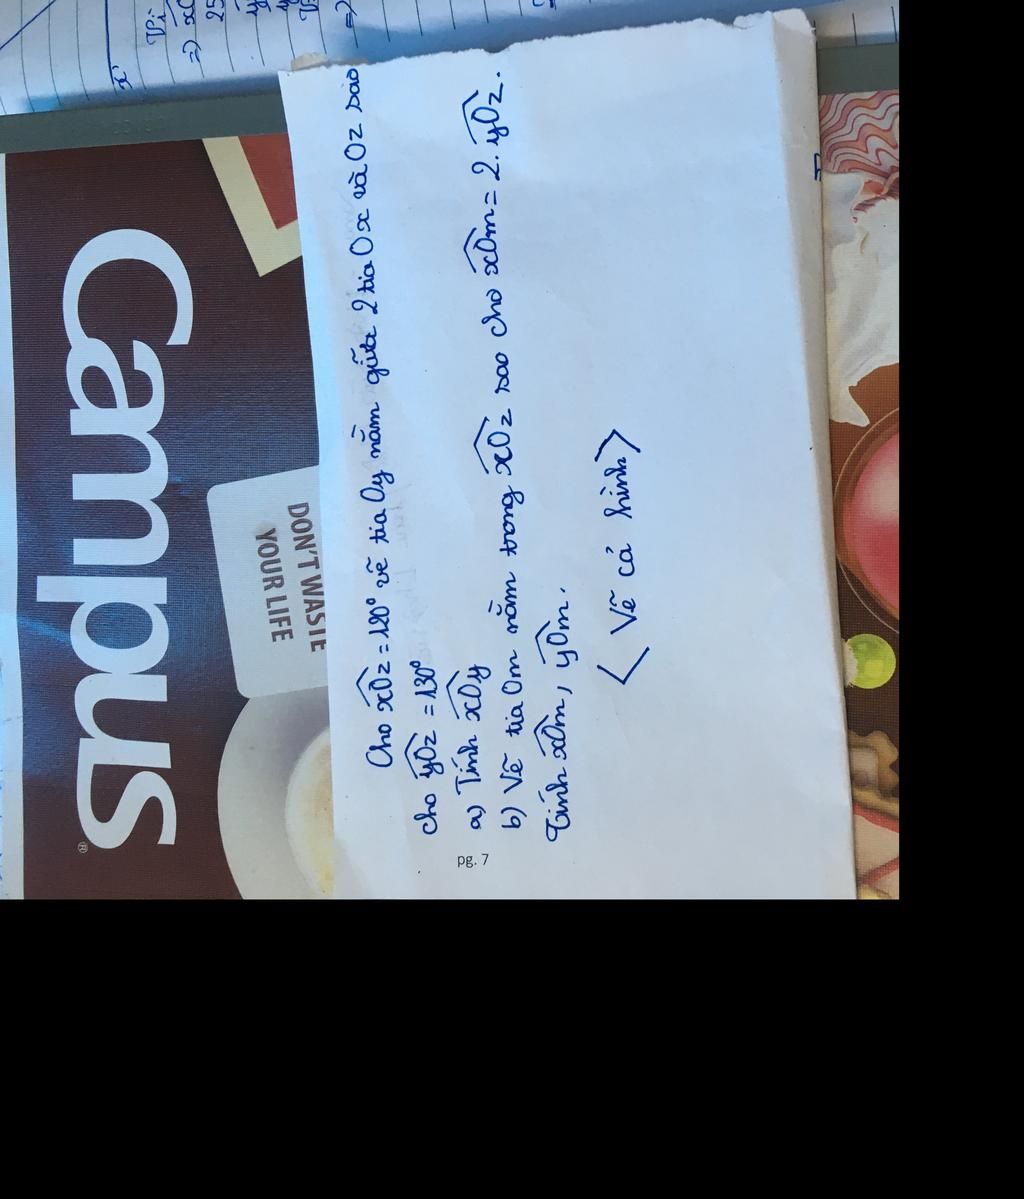 Vì
=) xO
25
x'
Campus®
DON'T WASTE
YOUR LIFE
Cho xOz = 120° vẽ tia Oy nằm giữa 2 tia Ox và Oz sao
cho yOz = 130°
a) Tính xOy
b) Vẽ tia Om nằm trong xOz sao cho xOm = 2. yOz.
Tính xOm, yOm.
< Vẽ cả hình >
pg. 7